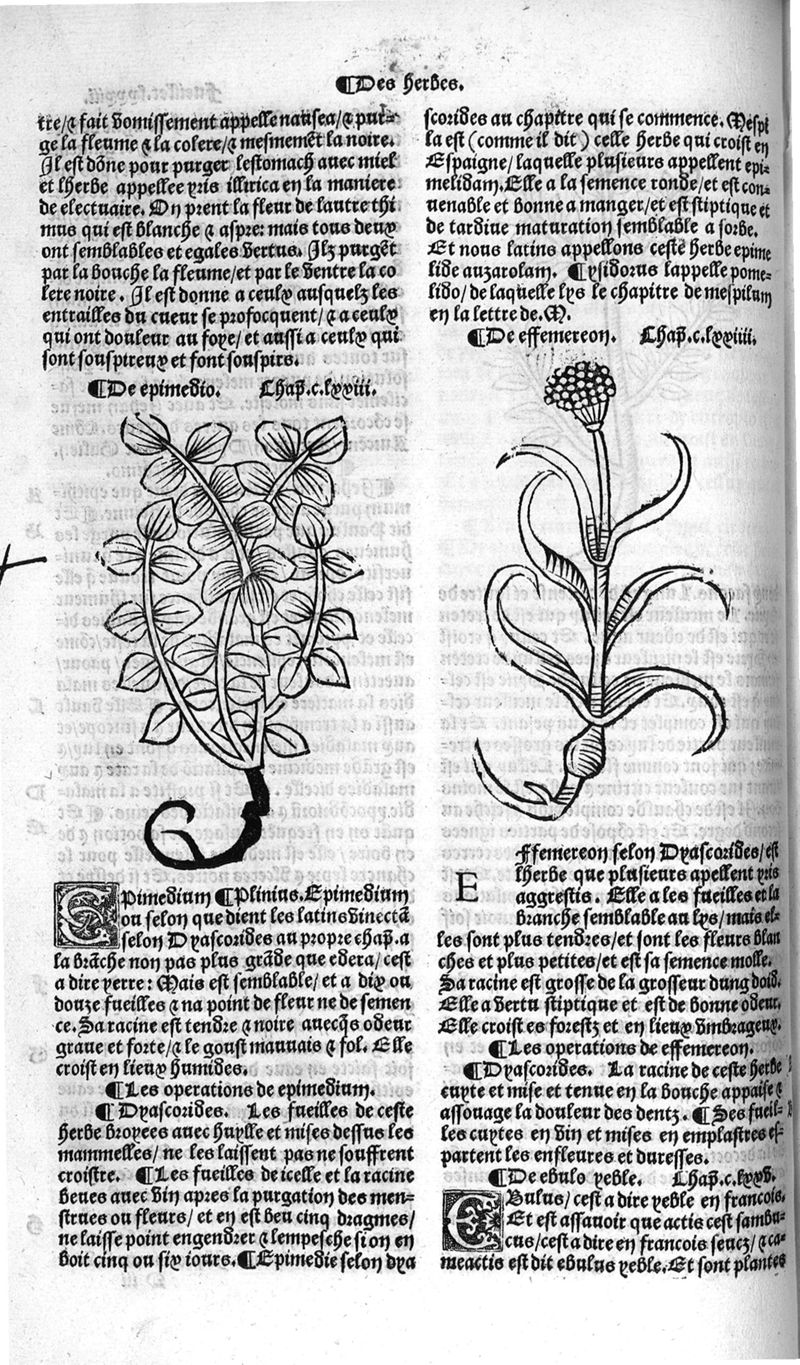 ¶Des herbes.
tre/⁊ fait vomissement appelle nausea/⁊ pur-
ge la fleume ⁊ la colere/⁊ mesmemēt la noire.
Il est dōne pour purger lestomach auec miel
et lherbe appellee yris illirica en la maniere
de electuaire. On prent la fleur de lautre thi
mus qui est blanche ⁊ aspre: mais tous deux
ont semblables et egales vertus. Ilz purgēt
par la bouche la fleume/et par le ventre la co
lere noire. Il est donne a ceulx ausquelz les
entrailles du cueur se profocquent/⁊ a ceulx
qui ont douleur au foye/et aussi a ceulx qui
sont souspireux et font souspirs.
¶De epimedio. Chap̄.c.lxxiii.
EPimedium ¶Plinius. Epimedium
ou selon que dient les latins vinectā
selon Dyascorides au propre chap̄.a
la brāche non pas plus grāde que edera/cest
a dire yerre: Mais est semblable/et a dix ou
douze fueilles ⁊ na point de fleur ne de semen
ce. Sa racine est tendre ⁊ noire auecq̄s odeur
graue et forte/⁊ le goust mauuais ⁊ fol. Elle
croist en lieux humides.
¶Les operations de epimedium.
¶Dyascorides. Les fueilles de ceste
herbe broyees auec huylle et mises dessus les
mammelles/ne les laissent pas ne souffrent
croistre. ¶Les fueilles de icelle et la racine
beues auec vin apres la purgation des men-
strues ou fleurs/et en est beu cinq dragmes/
ne laisse point engendrer ⁊ lempesche si on en
boit cinq ou six iours. ¶Epimedie selon dya
scorides au chapitre qui se commence. Mespi
la est (comme il dit) celle herbe qui croist en
Espaigne/laquelle plusieurs appellent epi-
melidam. Elle a la semence ronde/et est con-
uenable et bonne a manger/et est stiptique et
de tardiue maturation semblable a sorbe.
Et nous latins appellons ceste herbe epime
lide auzarolam. ¶ysidorus lappelle pome-
lido/de laquelle lys le chapitre de mespilum
en la lettre de.M.
¶De effemereon. Chap̄.c.lxxiiii.
EFfemereon selon Dyascorides/est
lherbe que plusieurs apellent yris
aggrestis. Elle a les fueilles et la
branche semblable au lys/mais el-
les sont plus tendres/et sont les fleurs blan
ches et plus petites/et est sa semence molle.
Sa racine est grosse de la grosseur dung doid.
Elle a vertu stiptique et est de bonne odeur.
Elle croist es forestz et en lieux vmbrageux.
¶Les operations de effemereon.
¶Dyascorides. La racine de ceste herbe
cuyte et mise et tenue en la bouche appaise ⁊
assouage la douleur des dentz. ¶Ses fueil-
les cuytes en vin et mises en emplastres es-
partent les enfleures et duresses.
¶De ebulo yeble. Chap̄.c.lxxv.
EBulus/cest a dire yeble en francois.
Et est assauoir que actis cest sambu-
cus/cest a dire en francois seuz/⁊ ca-
meactis est dit ebulus yeble. Et sont plantes